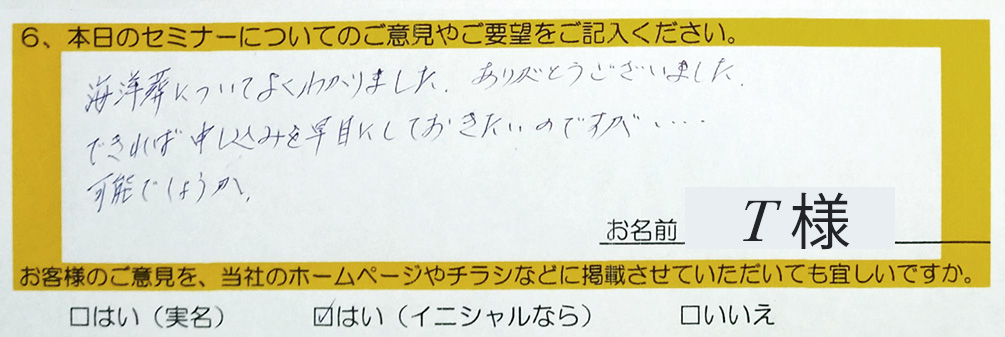 6、本日のセミナーについてのご意見やご要望をご記入ください。
海洋葬についてよくわかりました。ありがとうございました。
できれば申し込みを早目にしておきたいのですが・・・・
可能でしょうか。
お名前 T様
お客様のご意見を、当社のホームページやチラシなどに掲載させていただいても宜しいですか。
□はい（実名） ☑はい（イニシャルなら） □いいえ